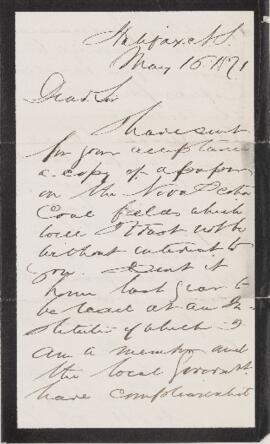 Halifax N.S.
May 16. 1871
Dear Sir
I have sent
for your acceptance
a copy of a paper
on the Nova Scotia
Coal fields which
will I trust not be
without interest to
you. I sent it
home last year to
be read at an In
stitute of which I
am a member and
the local
have complimented